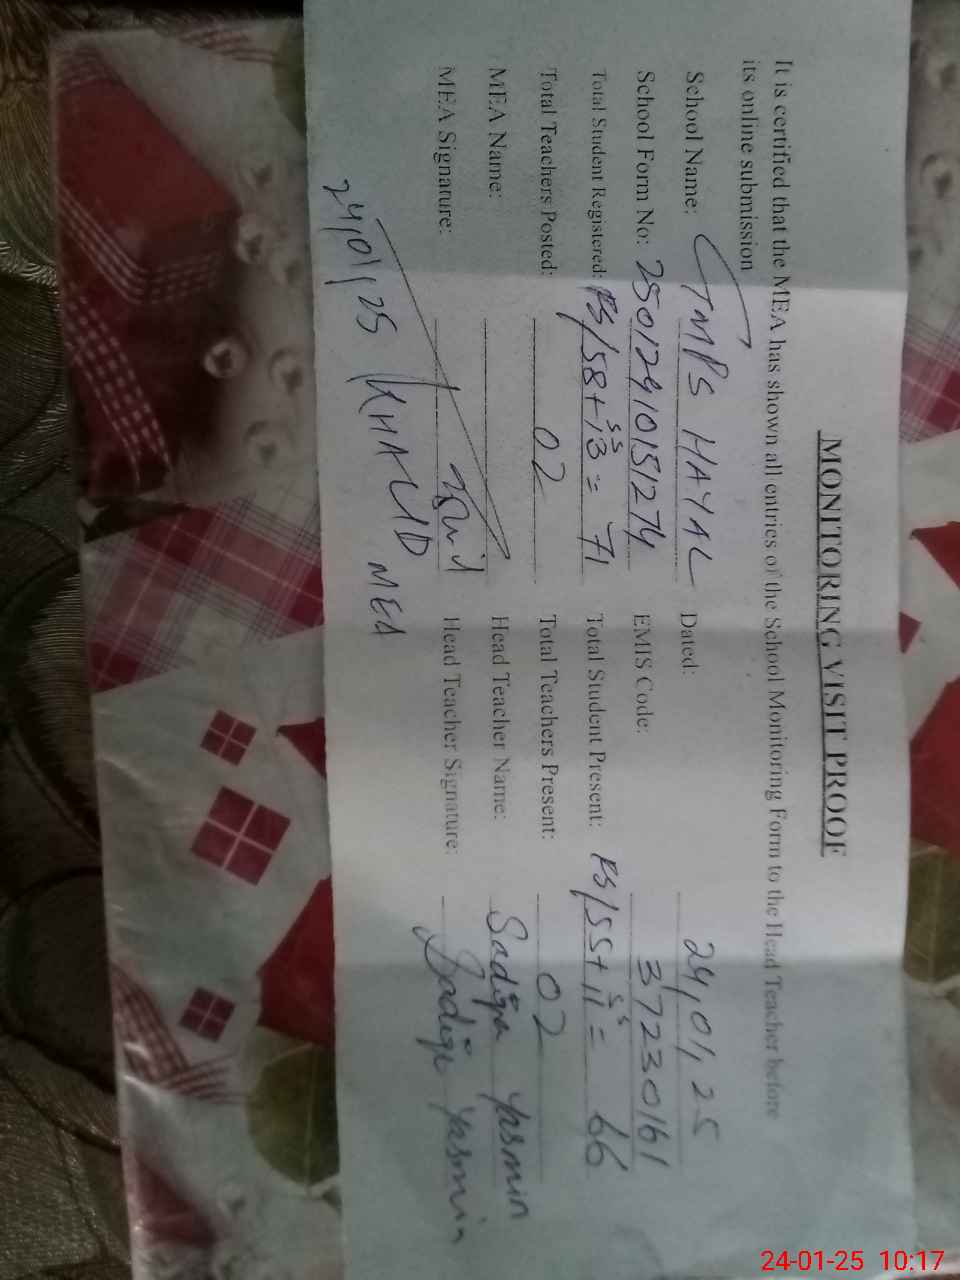 MONITORING VISIT PROOF
It is certified that the MEA has shown all entries of the School Monitoring Form to the Head Teacher before
its online submission
School Name: GMPS HAYAL Dated: 24,01,25
School Form No: 25012410151274 EMIS Code: 37230161
Total Student Registered: PS/58+13 SS = 71 Total Student Present: PS/55+11 SS = 66
Total Teachers Posted: 02 Total Teachers Present: 02
MEA Name: Head Teacher Name: Sadiqa Yasmin
MEA Signature: Head Teacher Signature: Sadiqa Yasmin
24,01,25 MEA
24-01-25 10:17